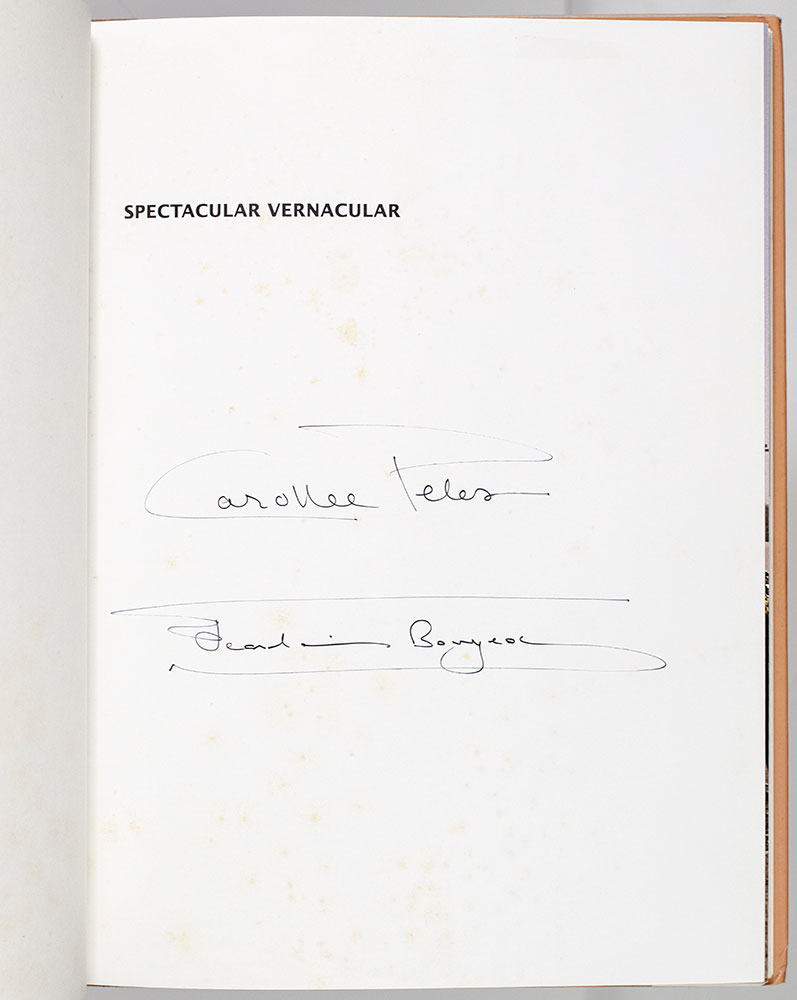 SPECTACULAR VERNACULAR
Carollee Pelos
Jean-Louis Bourgeois